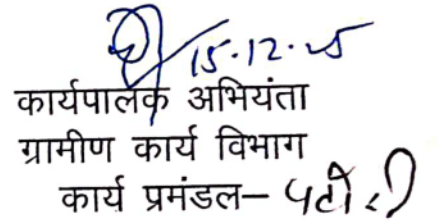 15.12.25
कार्यपालक अभियंता
ग्रामीण कार्य विभाग
कार्य प्रमंडल–